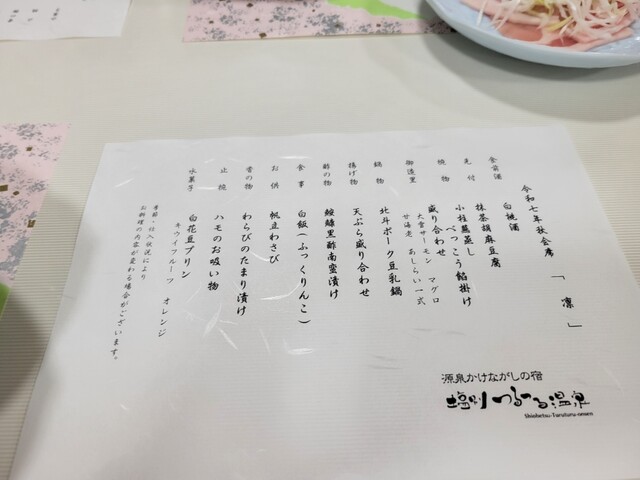 令和七年秋会席 「凛」
食前酒 白桃酒
先付 抹茶胡麻豆腐
小柱燕蒸し
べっこう餡掛け
焼物 盛り合わせ
御造里 大雪サーモン マグロ
甘海老 あしらい一式
鍋物 北斗ポーク豆乳鍋
揚げ物 天ぷら盛り合わせ
酢の物 鰊黒酢南蛮漬け
食事 白飯(ふっくりんこ)
お供 帆立わさび
香の物 わらびのたまり漬け
止椀 ハモのお吸い物
水菓子 白花豆プリン
キウイフルーツ オレンジ
季節・仕入状況により
お料理の内容が変わる場合がございます。
源泉かけながしの宿
塩別つるつる温泉
Shiobetsu-Tsurutsuru-onsen